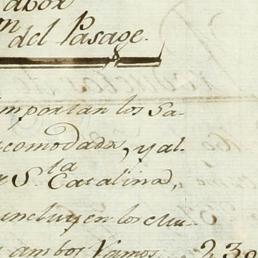 del Pasage.
importan los Sa-
acomodada, y al
S.ta Catalina,
incluyen en los
ambos Ramos 230